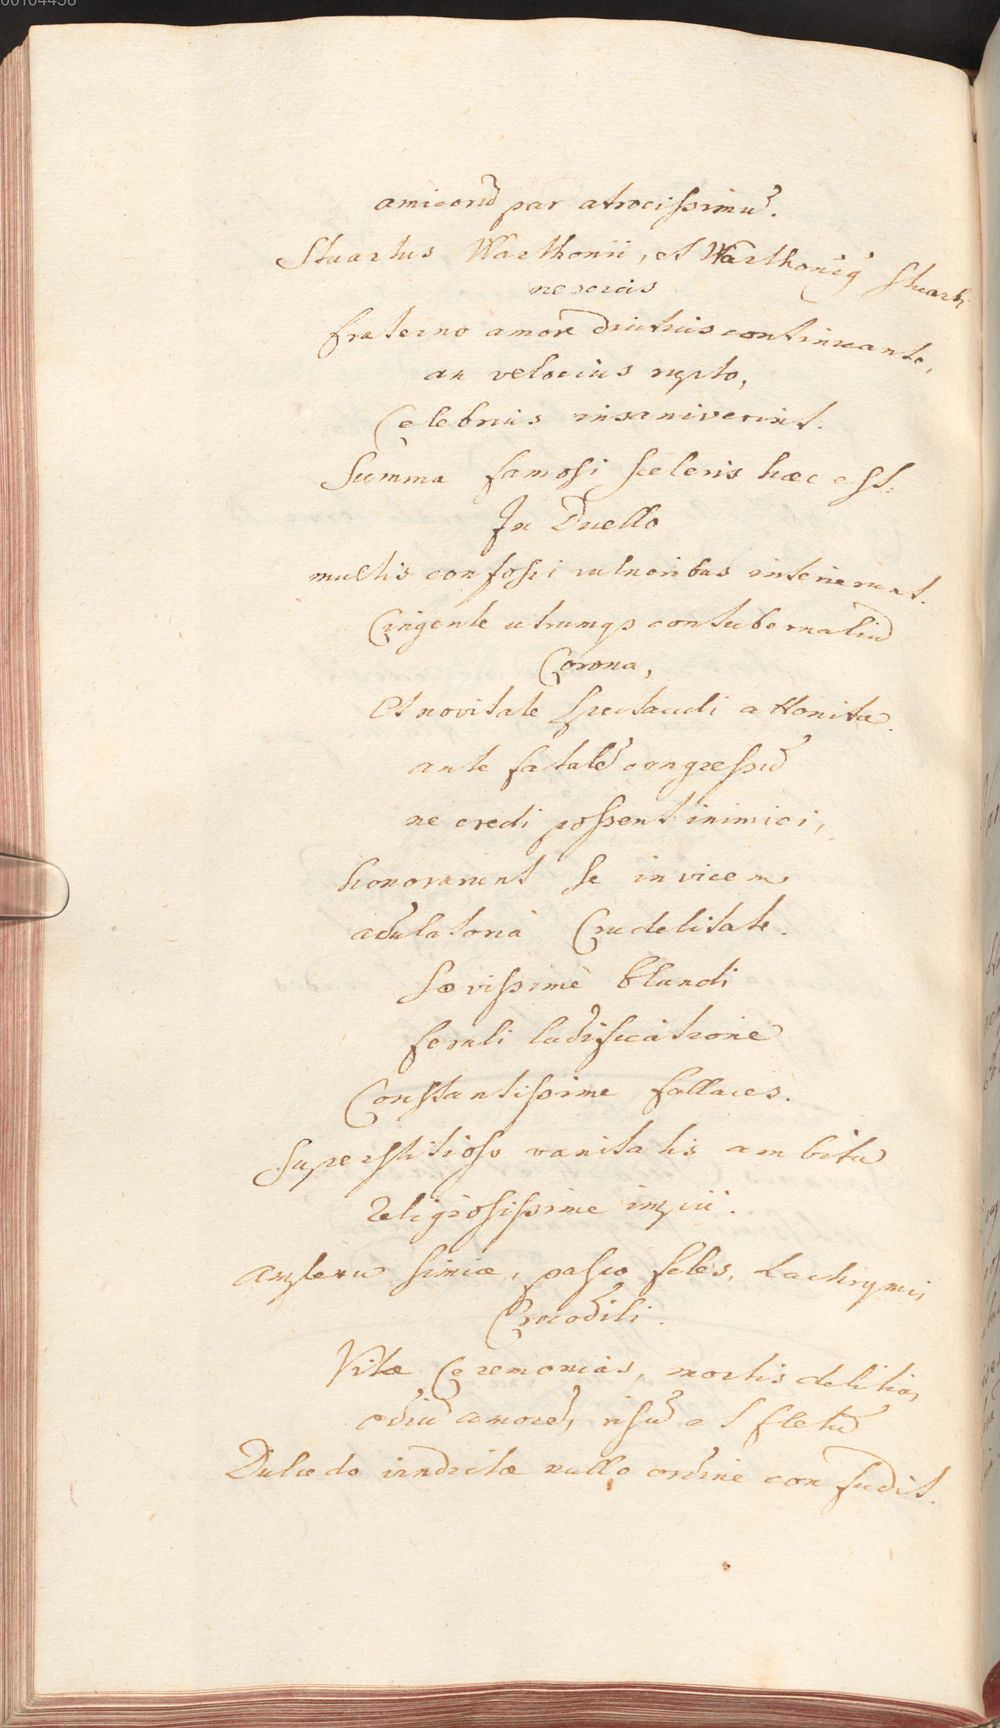 00104456
amicorũ par atrocissimũ.
Stuartus Warthonii, et Warthoniq' Stuarti
nescias
fraterno amore diutius continuante,
an velocius rupto,
Celebrius insaniverint.
Summa famosi sceleris hæc est:
In Duello
multis confossi vulneribus interierunt.
Cingente utrumqs contubernaliũ
Corona,
Et novitate spectaculi attonita.
ante fatalẽ congressũ
ne credi possent inimici,
honorarunt se invicem
adulatoriâ Crudelitate.
Sævissimè blandi
ferali ludificatione
Constantissime fallaces.
Superstitioso vanitatis ambitu
Religiosissime impii.
Amplexu simiæ, passo feles, Lachrymis
Crocodili.
Vitæ Ceremonias, mortis delitias,
odiũ amorẽ, risũ et fletũ
Dulcedo vindictæ nullo ordine confudit.